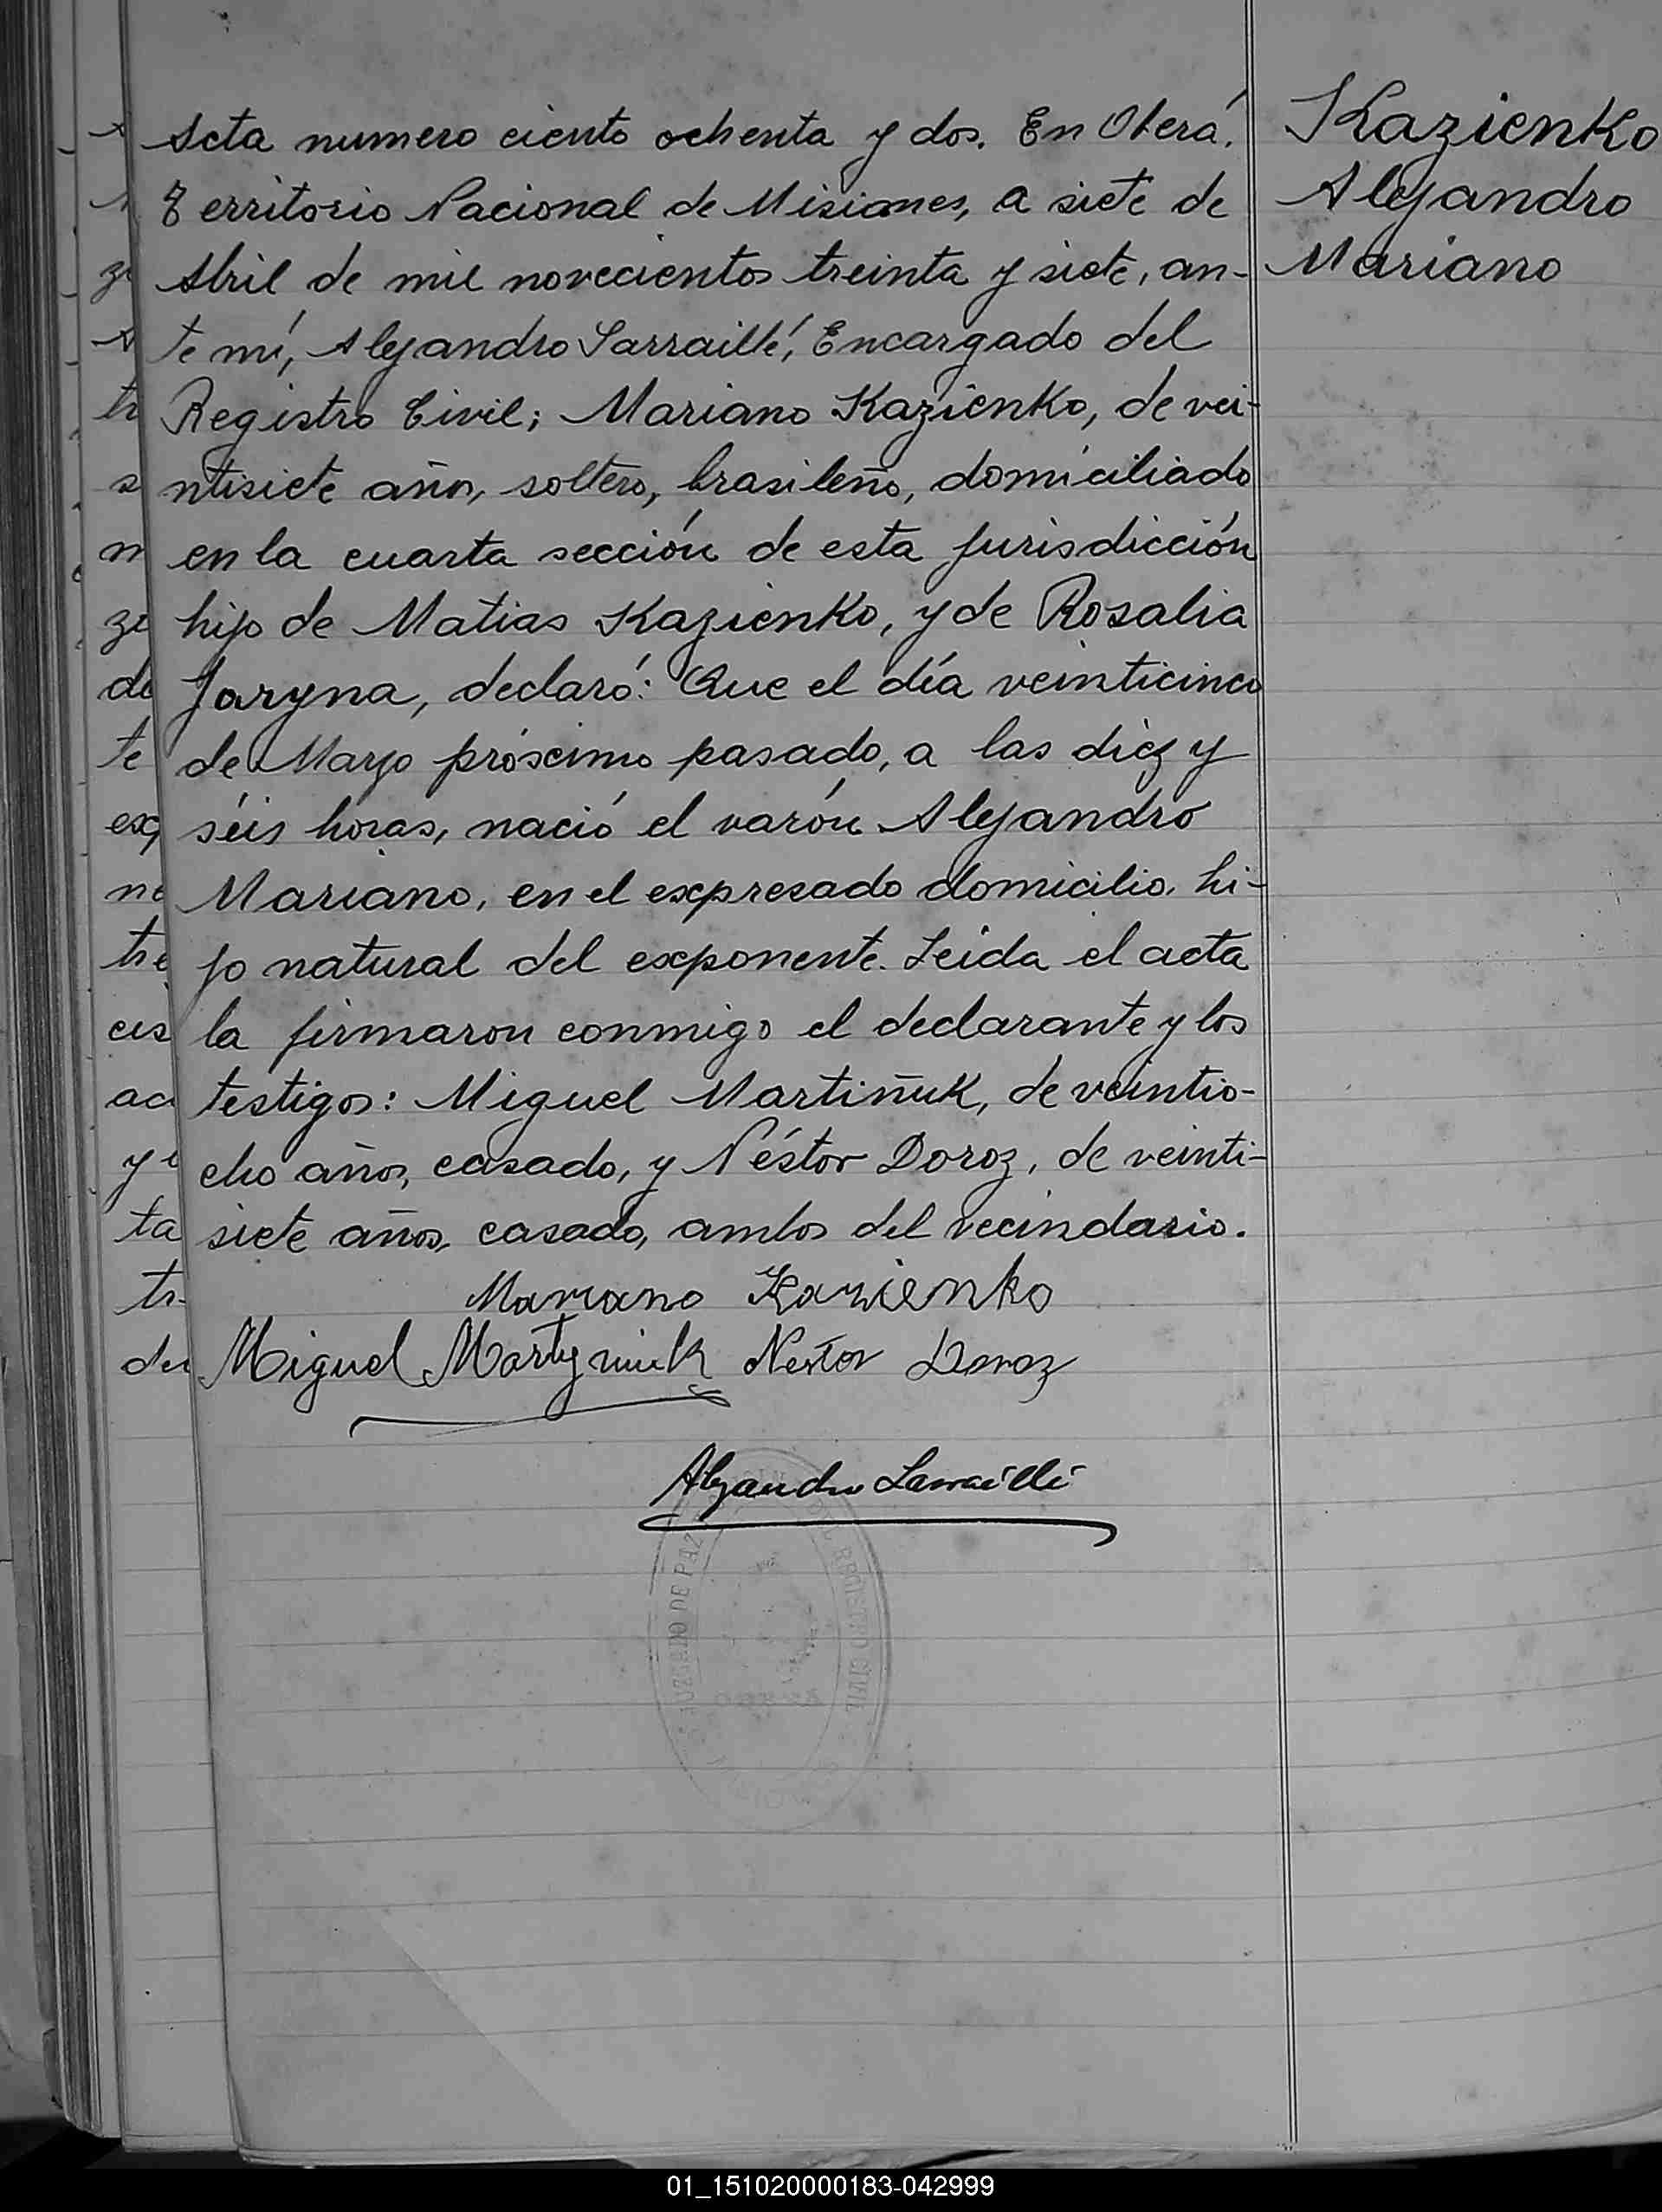 Acta numero ciento ochenta y dos. En Oberá,
Territorio Nacional de Misiones, a siete de
Abril de mil novecientos treinta y siete, an-
te mí, Alejandro Sarraillé, Encargado del
Registro Civil; Mariano Kazienko, de vei-
ntisiete años, soltero, brasileño, domiciliado
en la cuarta sección de esta jurisdicción
hijo de Matias Kazienko, y de Rosalia
Jaryna, declaró: Que el día veinticinco
de Marzo próscimo pasado, a las diéz y
séis horas, nació el varón Alejandro
Mariano, en el expresado domicilio, hi-
jo natural del exponente. Leida el acta
la firmaron conmigo el declarante y los
testigos: Miguel Martiñuk, de veintio-
cho años, casado, y Néstor Doroz, de veinti-
siete años, casado, ambos del vecindario.
Mariano Kazienko
Miguel Martyniuk Nestor Doroz
Alejandro Sarraillé
JUZGADO DE PAZ
DEL REGISTRO CIVIL
Kazienko
Alejandro
Mariano
01_151020000183-042999